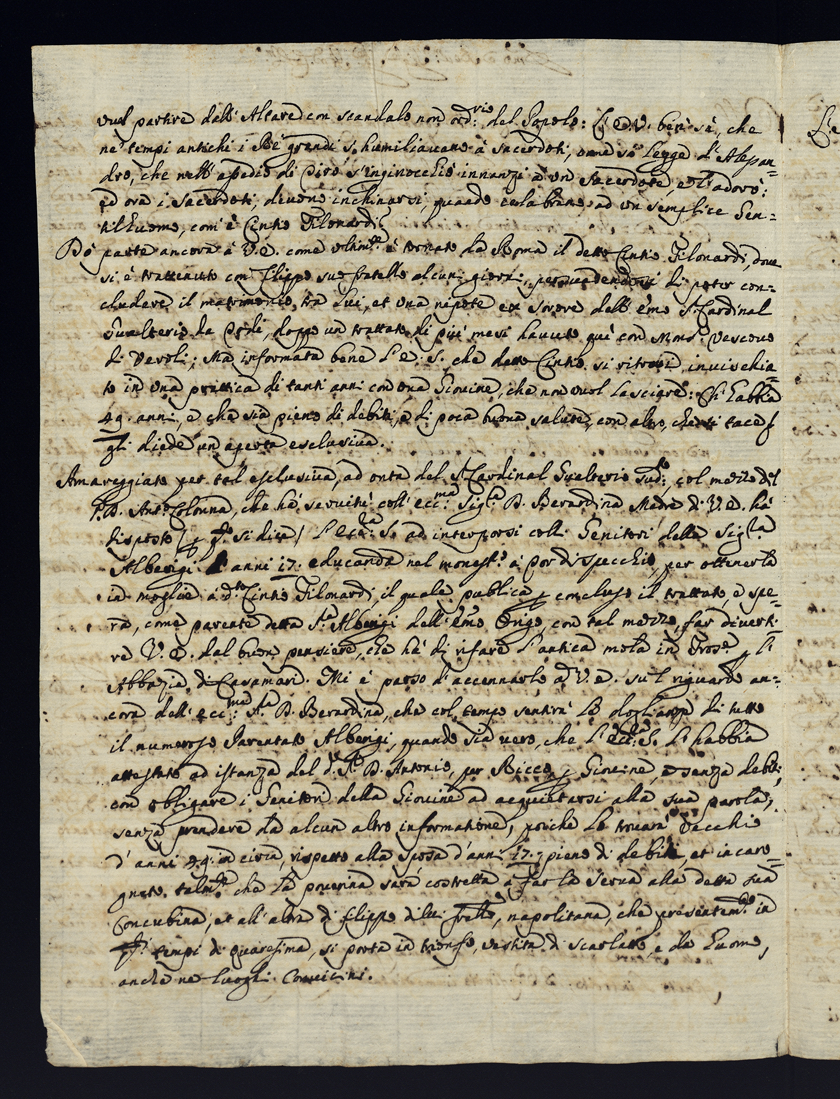 vuol partire dall'Altare con scandalo non ord:rio del Popolo: L'E.V. ben sà, che
ne tempi antichi i Rè grandi s'humiliavano à Sacerdoti, come si Legge d'Alessan=
dro, che nell'assedio di Tiro s'inginocchiò innanzi à un Sacerdote e l'adorò:
ed ora i Sacerdoti, devono inchinarsi, quando celebrano ad un semplice Gen=
til'huomo, com'è Cintio Filonardi.
Dò parte ancora à V.E. come ultim.te è tornato da Roma il detto Cintio Filonardi, dove
si è trattenuto con Filippo suo fratello alcuni giorni, persuadendosi di poter con=
cludere il matrimonio tra Lui, et una nipote ex Sorore dell'Emo Sr. Cardinal
Gualterio da Todi, doppo un trattato di più mesi havuto quì con Monsr. Vescovo
di Veroli; Ma informata bene L'E.S. che detto Cintio si ritrovi invischia=
to in una prattica di tanti anni con una Giovine, che non vuol lasciare: Ch'habbia
49. anni, e che sia pieno di debiti, e di poca buona salute, con altro, che si tace
gli diede un'aperta esclusiva.
Amareggiato per tal esclusiva, ad onta del Sr. Cardinal Gualterio sud.to, col mezzo del
P.D. Ant.o Colonna, che hà servitù coll'Ecc:ma Sig.ra D. Berardina Madre di V.E. hà
disposto si dica L'Ecc.za S. ad interporsi colli Genitori della Sig.ra
Alberigi anni 17. educanda nel monast.o à Tor di specchio, per ottenerla
in moglie à d.to Cintio Filonardi, il quale publica concluso il trattato, e spe=
ra, come parente detta S.ra Alberigi dell'Emo con tal mezzo, far diverti=
re V.E. dal buon pensiere, che hà di rifare l'antica mola in
Abbazia di Casamari. Mi è parso d'accennarlo ad V.E. sul riguardo an=
cora dell'Ecc:ma S.ra D. Berardina, che col tempo sentirà le doglianze di tutto
il numeroso Parentato Alberigi, quando sia vero, che L'Ecc.za S. L'habbia
attestato ad istanza del d.o P.D. Antonio, per Ricco, Giovine, e senza debiti,
con obligare i Genitori della Giovine ad acquietarsi alla sua parola,
senza prendere da alcun altro informatione, poiche lo trovarà Vecchio
d'anni 49. in circa, rispetto alla sposa d'anni 17., pieno di debiti, et in caro=
gnato talm.te che la poverina sarà costretta à far la serva alla detta sua
Concubina, et all'altra di Filippo di lui fratello, napolitana, che presentem.te in
tempi di quaresima, si porta in trionfo, vestita di scarlatto, e da huomo,
anche ne luoghi Convicini.